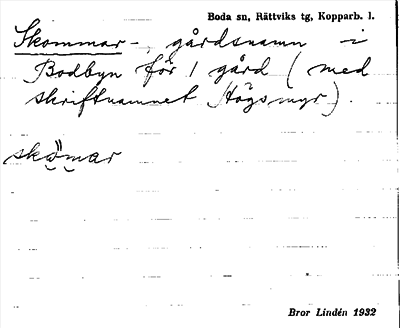 Boda sn, Rättviks tg, Kopparb. l.
Skommar - gårdsnamn i
Bodbyn för 1 gård (med
skriftnamnet Högsmyr).
skömar
Bror Lindén 1932